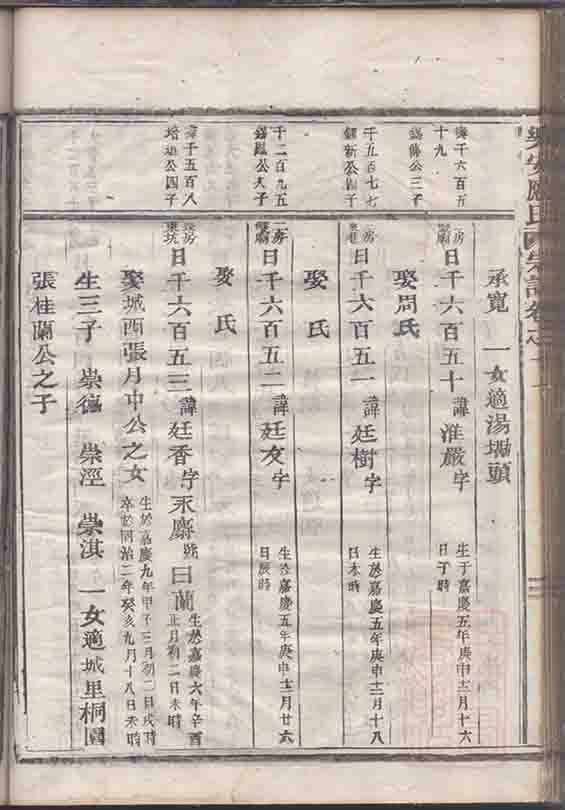 承寬 一女適湯塘頭
房
日千六百五十諱淮嚴字
生于嘉慶五年庚申十二月十六
日子時
娶周氏
房
日千六百五一諱廷樹字
生於嘉慶五年庚申十二月十八
日未時
娶 氏
房
日千六百五二諱廷文字
生於嘉慶五年庚申十二月廿六
日辰時
娶 氏
日千六百五三諱廷香字永馨號曰蘭
生於嘉慶六年辛酉
正月初二日未時
娶城西張月中公之女
生於嘉慶九年甲子三月初二日戌時
卒於同治二年癸亥九月十八日未時
生三子 崇德 崇涇 崇淇 一女適城里桐園
張桂蘭公之子
千六百五
十九
公三子
千五百七七
新公四子
千二百九五
鳳公大子
千五百八
培 公四子